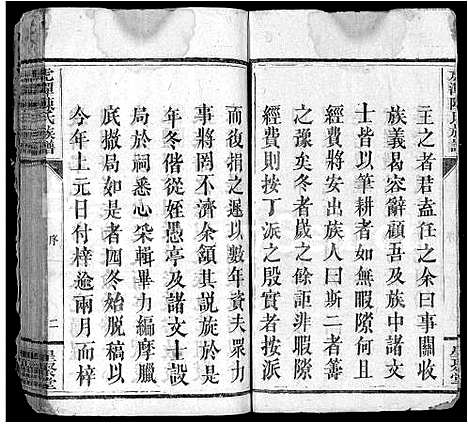 主之者君盍往之余曰事關收
族義曷容辭顧吾及族中文
士皆以筆耕者如無暇隙何且
經費將安出族人曰斯二者籌
之豫矣冬者歲之餘詎非暇隙
經費則按丁派之殷實者按派
而復捐之遲以數年資夫眾力
事將罔不濟余頷其說旋於是
年冬偕從姪愚亭及諸文士設
局於祠悉心采輯畢力編摩臘
底撤局如是者四冬始脫稿以
今年上元日付梓逾兩月而梓
虎潭陳氏族譜
序
二
星聚堂